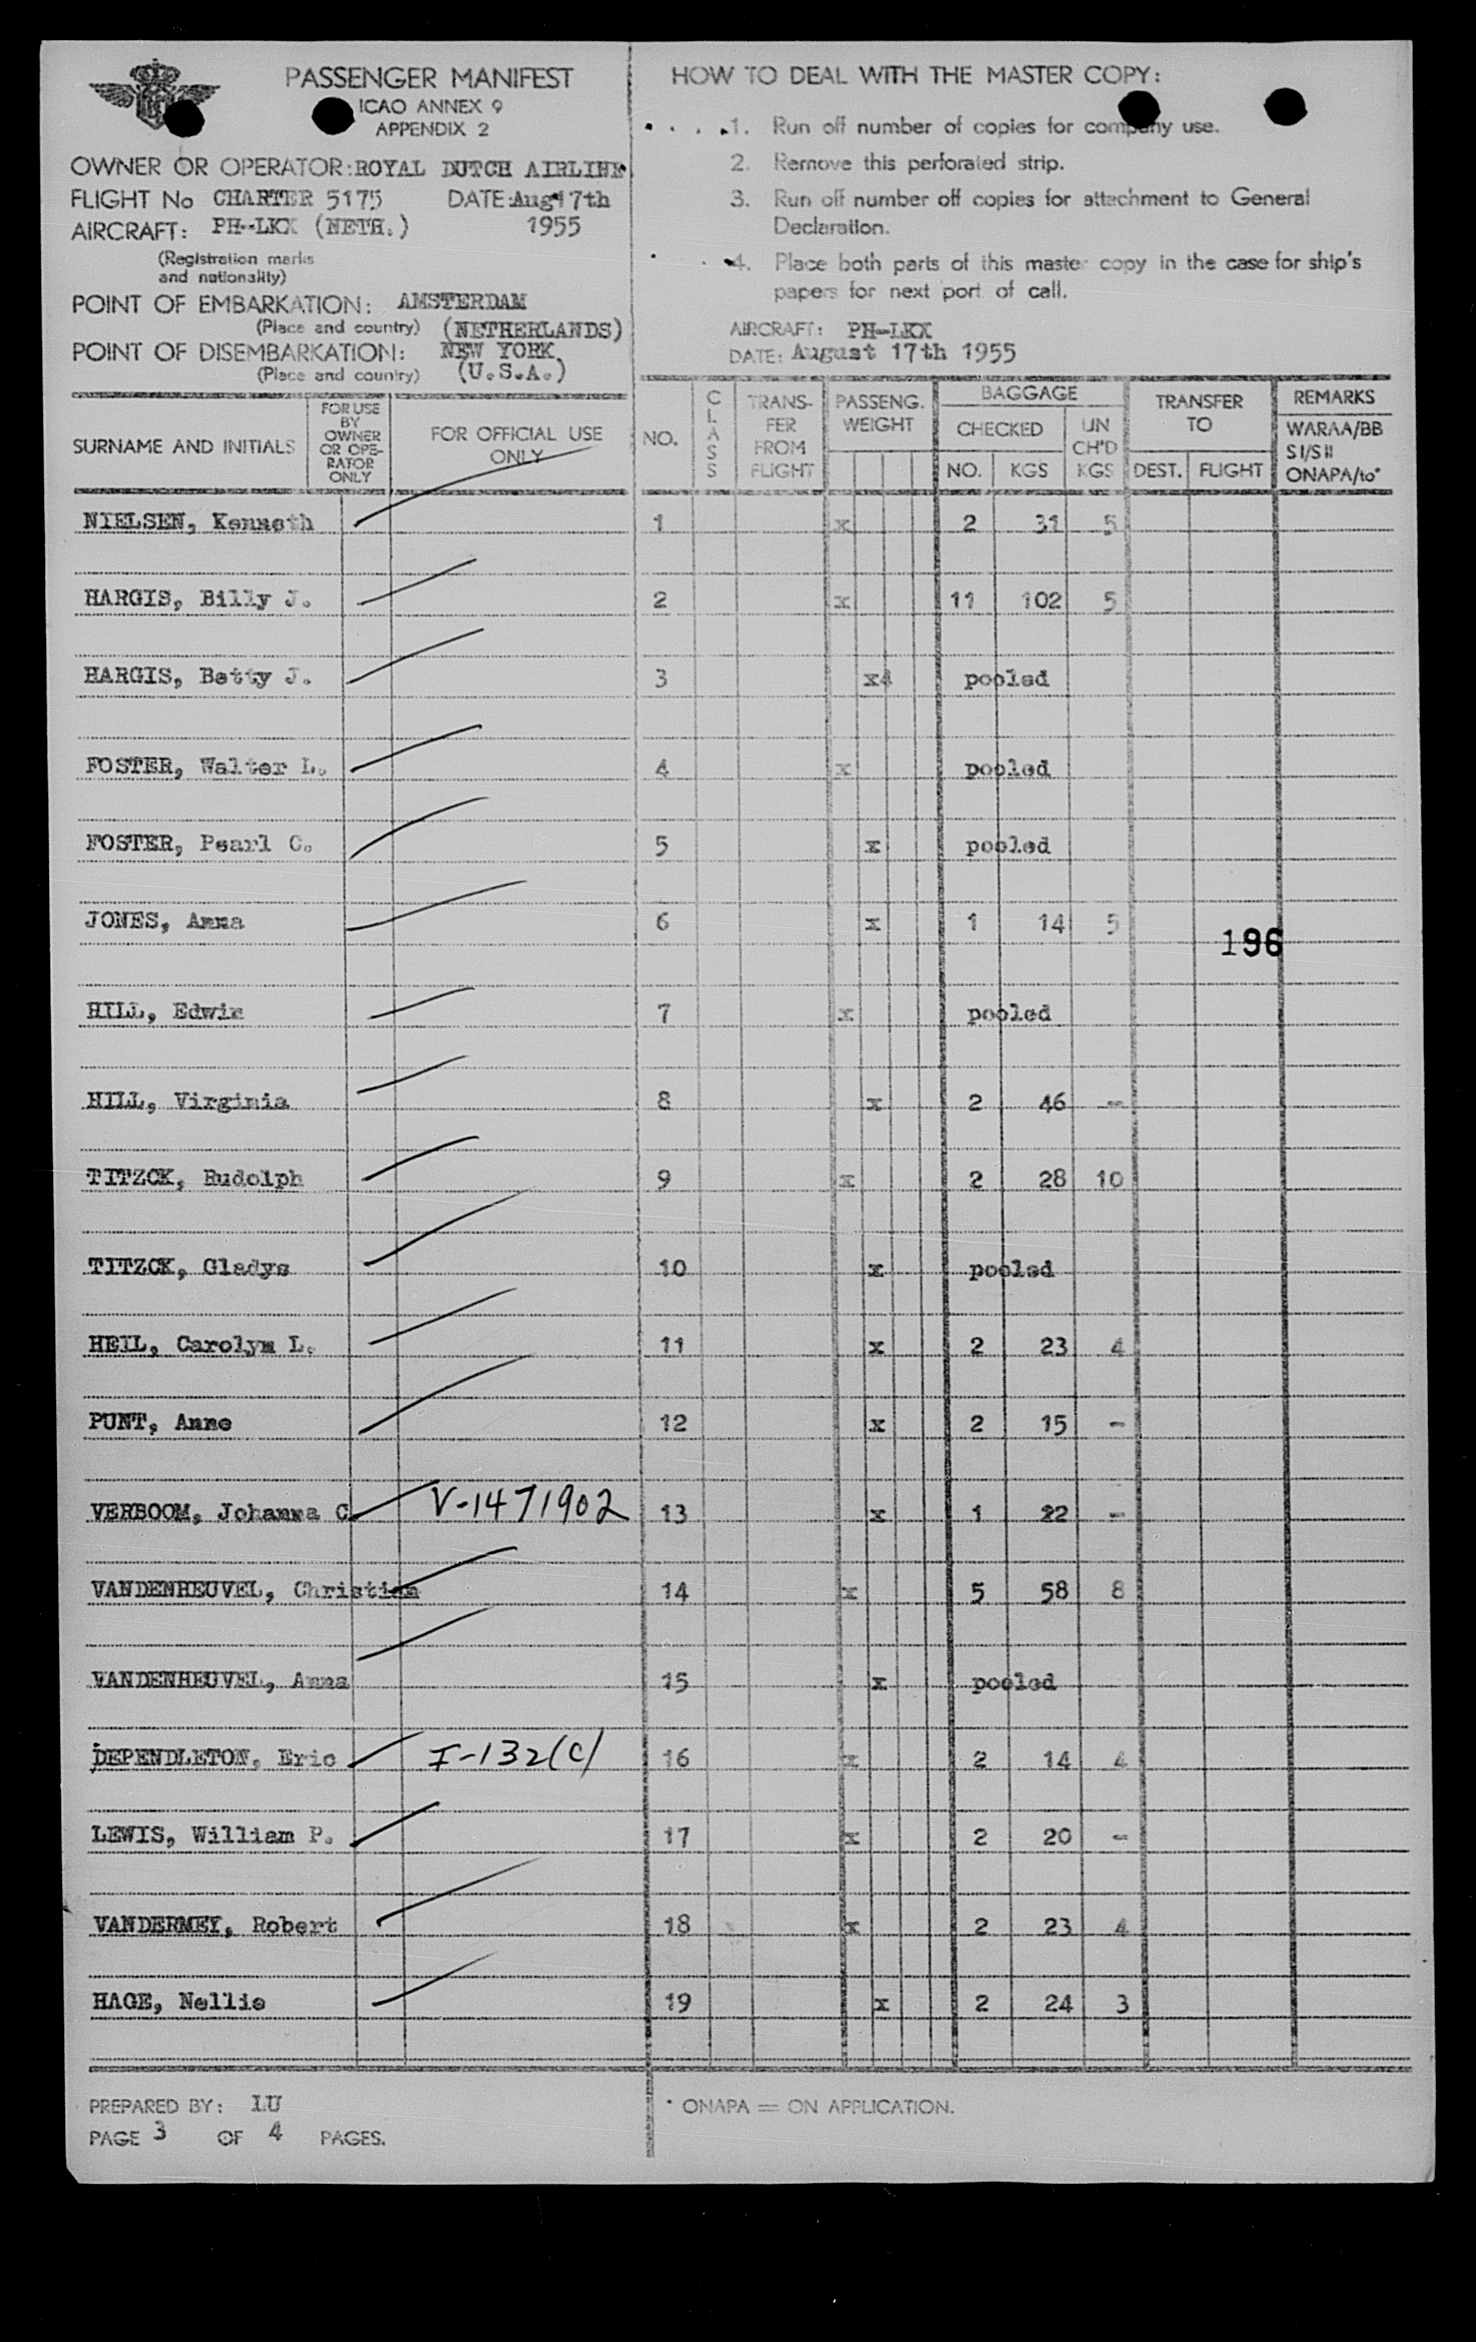 PASSENGER MANIFEST
ICAO ANNEX 9
APPENDIX 2
OWNER OR OPERATOR: ROYAL DUTCH AIRLINE
FLIGHT No CHARTER 5175 DATE: Aug 17th
AIRCRAFT: PH-LKX (NETH.) 1955
(Registration marks
and nationality)
POINT OF EMBARKATION: AMSTERDAM
(Place and country) (NETHERLANDS)
POINT OF DISEMBARKATION: NEW YORK
(Place and country) (U.S.A.)
HOW TO DEAL WITH THE MASTER COPY:
1. Run off number of copies for company use.
2. Remove this perforated strip.
3. Run off number off copies for attachment to General
Declaration.
4. Place both parts of this master copy in the case for ship's
papers for next port of call.
AIRCRAFT: PH-LKX
DATE: August 17th 1955
SURNAME AND INITIALS
FOR USE
BY
OWNER
OR OPE-
RATOR
ONLY
FOR OFFICIAL USE
ONLY
NO.
CLASS
TRANS-
FER
FROM
FLIGHT
PASSENG.
WEIGHT
BAGGAGE
CHECKED
NO. KGS
UN
CH'D
KGS
TRANSFER
TO
DEST. FLIGHT
REMARKS
WARAA/BB
SI/SII
ONAPA/to*
NIELSEN, Kenneth 1 x 2 31 5
HARGIS, Billy J. 2 x 11 102 5
HARGIS, Betty J. 3 x4 pooled
FOSTER, Walter L. 4 x pooled
FOSTER, Pearl C. 5 x pooled
JONES, Anna 6 x 1 14 5
196
HILL, Edwin 7 x pooled
HILL, Virginia 8 x 2 46 -
TITZCK, Rudolph 9 x 2 28 10
TITZCK, Gladys 10 x pooled
HEIL, Carolyn L. 11 x 2 23 4
PUNT, Anne 12 x 2 15 -
VERBOOM, Johanna C V-1471902 13 x 1 22 -
VANDENHEUVEL, Christian 14 x 5 58 8
VANDENHEUVEL, Anna 15 x pooled
DEPENDLETON, Eric I-132(c) 16 x 2 14 4
LEWIS, William P. 17 x 2 20 -
VANDERMEY, Robert 18 x 2 23 4
HAGE, Nellie 19 x 2 24 3
PREPARED BY: LU
PAGE 3 OF 4 PAGES.
* ONAPA = ON APPLICATION.